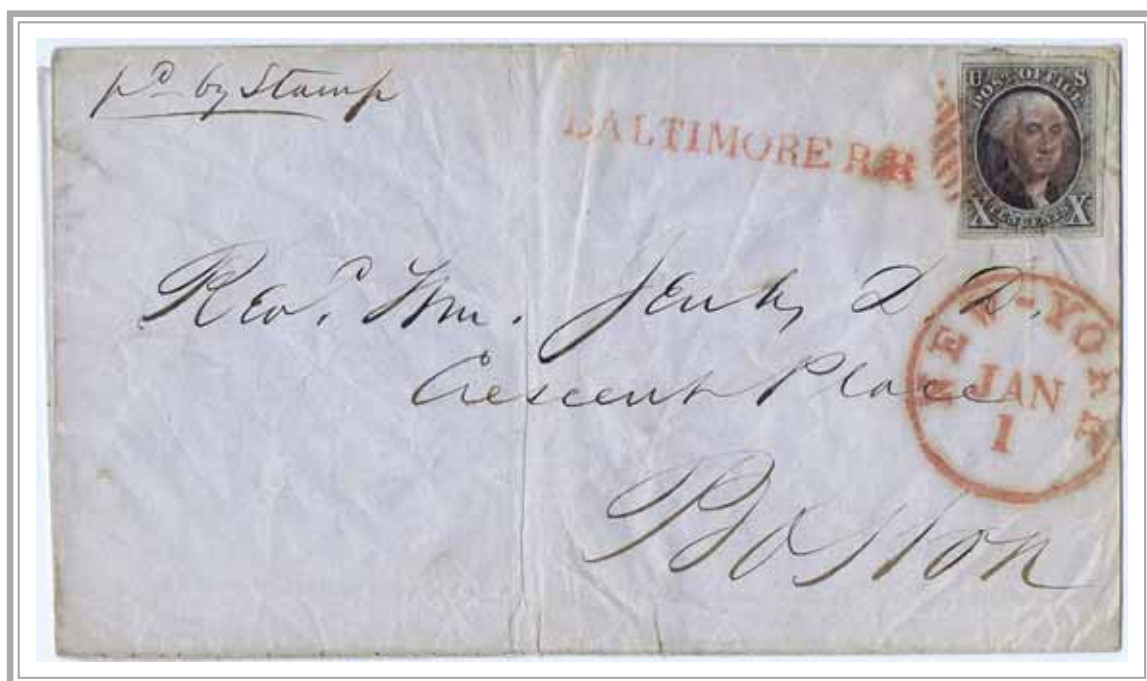 pd by Stamp
BALTIMORE R.R
U S
POST OFFICE
X TEN CENTS X
Revd. Wm. Jenks D. D.
Crescent Place
Boston
NEW-YORK
JAN
1